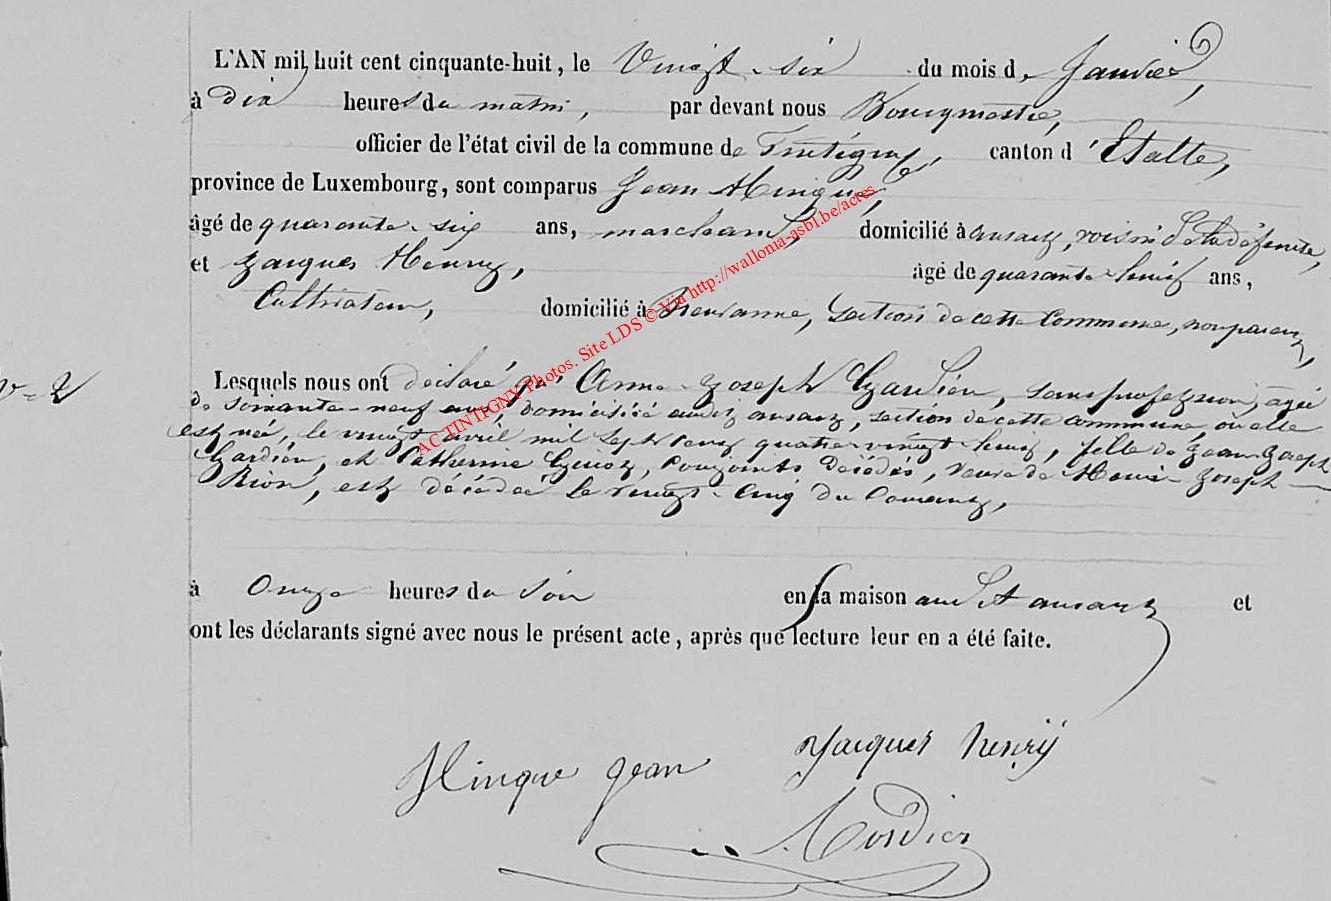 L'AN mil huit cent cinquante-huit, le Vingt-six du mois de Janvier,
à dix heures du matin, par devant nous Bourgmestre,
officier de l'état civil de la commune de Tintigny, canton d'Etalle,
province de Luxembourg, sont comparus Jean Hinque,
âgé de quarante-six ans, marchand, domicilié à ansart, voisin de la défunte,
et Jacques Henry, âgé de quarante-huit ans,
Cultivateur, domicilié à section de cette Commune, non parens,
n-2
Lesquels nous ont déclaré qu'Anne-Joseph Gardien, sans profession, agée
de soixante-neuf ans, domiciliée audit ansart, section de cette commune, où elle
est née, le vingt avril mil sept cent quatre vingt huit, fille de Jean-Joseph
Gardien, et Catherine conjoints décédés, veuve de Henri-Joseph
Rion, est décédée le vingt-cinq du Courant,
à Onze heures du soir en sa maison audit ansart et
ont les déclarants signé avec nous le présent acte, après que lecture leur en a été faite.
Hinque Jean Jacques henrÿ
AC TINTIGNY Photos. Site LDS © Via http://wallonia-asbl.be/actes